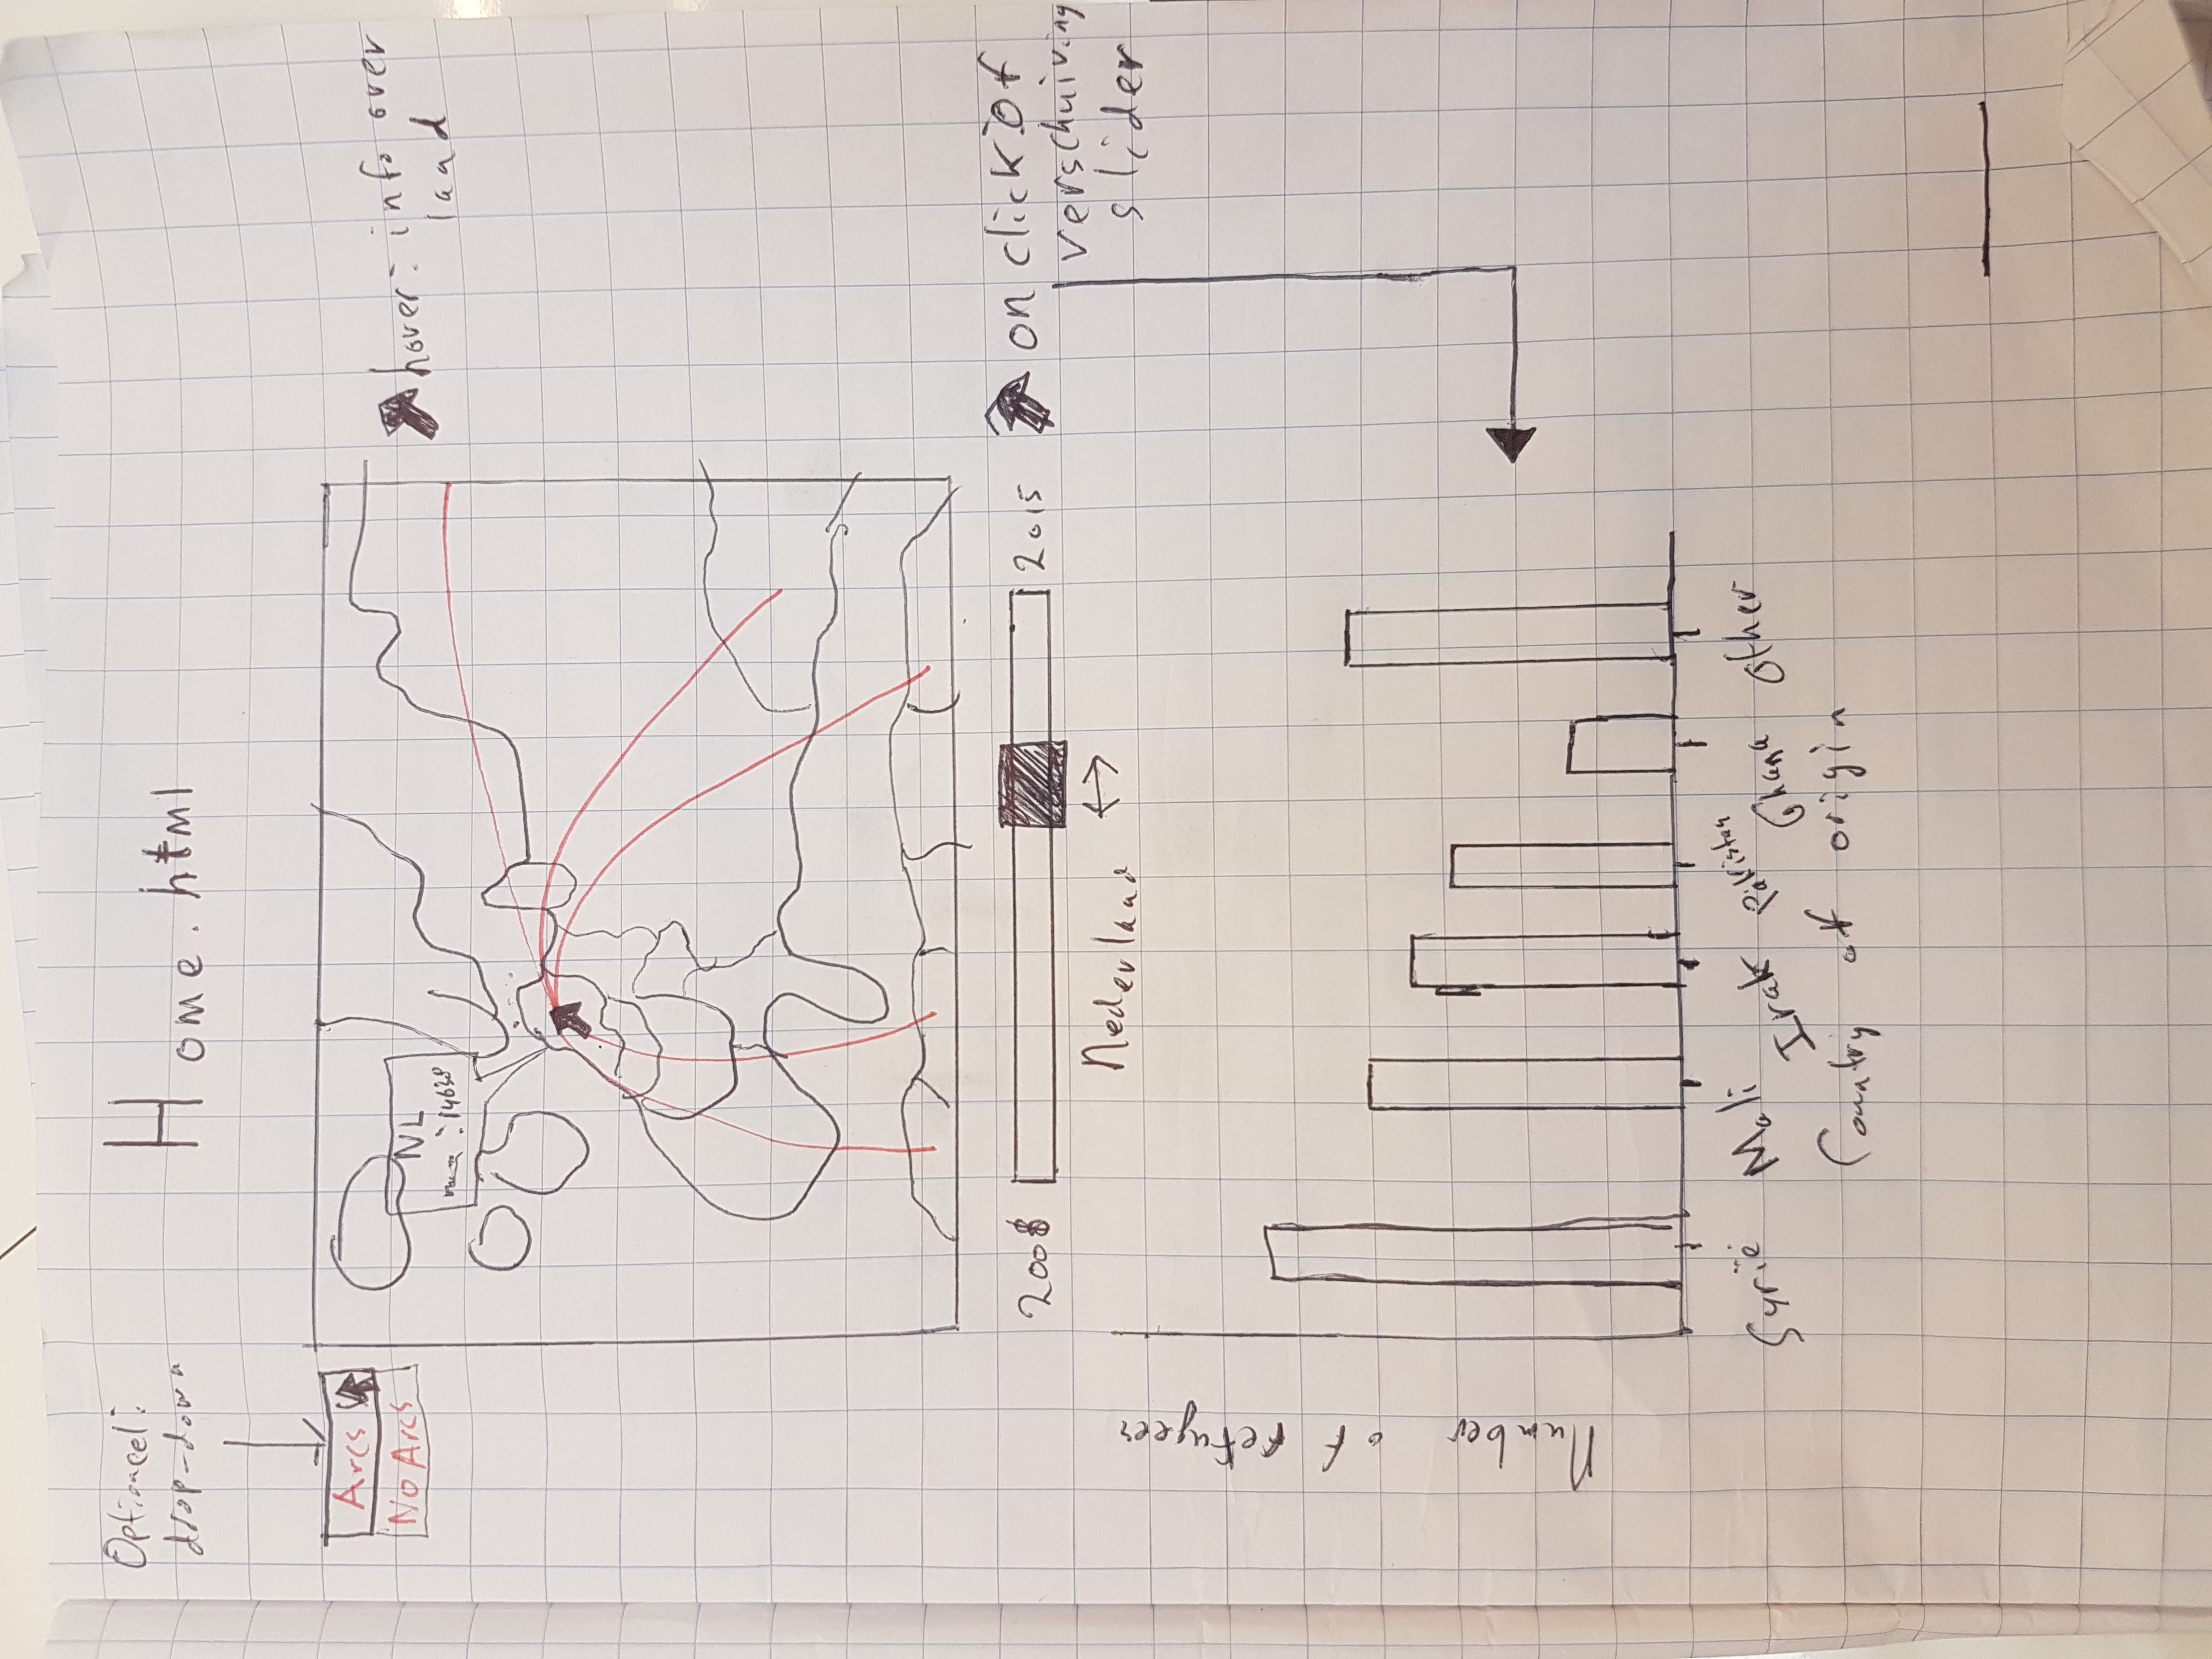 Optioneel:
drop-down
Home.html
Arcs
No Arcs
NL
: 14638
hover: info over
land
2008
2015
on click of
verschuiving
slider
Nederland
Number of refugees
Syrië
Mali
Irak
Pakistan
Ghana
Other
Country of origin